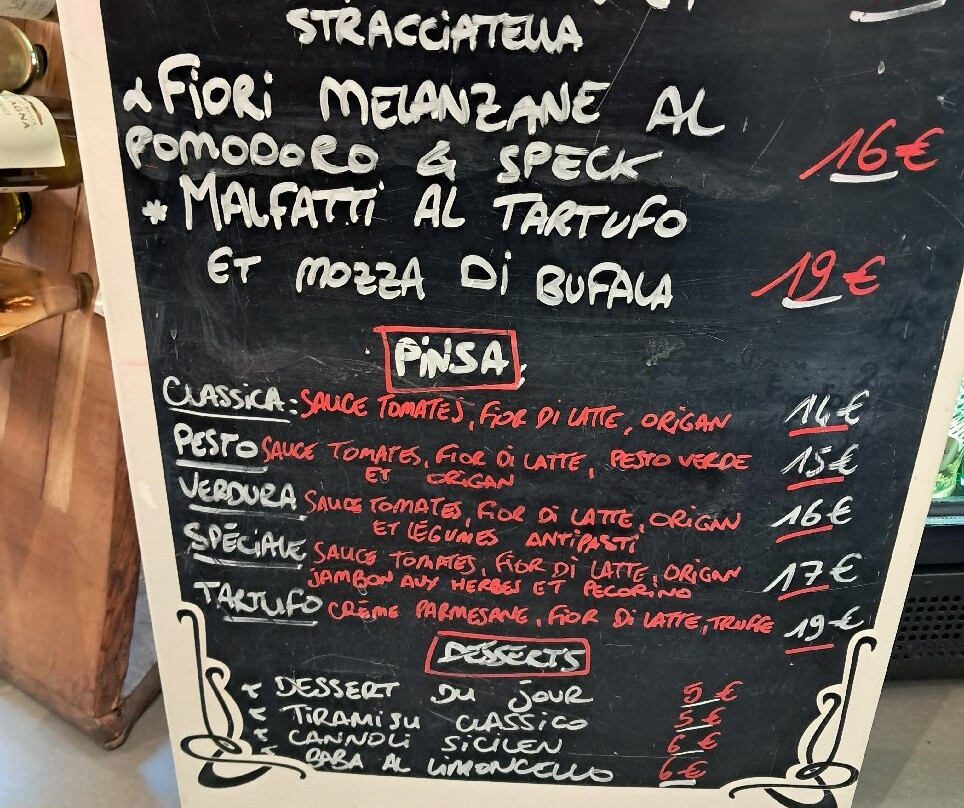 STRACCIATELLA
FIORI MELANZANE AL
POMODORO & SPECK 16€
* MALFATTI AL TARTUFO
ET MOZZA DI BUFALA 19€
PINSA
CLASSICA: SAUCE TOMATES, FIOR DI LATTE, ORIGAN 14€
PESTO SAUCE TOMATES, FIOR DI LATTE, PESTO VERDE 15€
ET ORIGAN
VERDURA SAUCE TOMATES, FIOR DI LATTE, ORIGAN 16€
ET LÉGUMES ANTIPASTI
SPÉCIALE SAUCE TOMATES, FIOR DI LATTE, ORIGAN 17€
JAMBON AUX HERBES ET PECORINO
TARTUFO CRÈME PARMESANE, FIOR DI LATTE, TRUFFE 19€
DESSERTS
DESSERT DU JOUR 5€
TIRAMISU CLASSICO 5€
CANNOLI SICILEN 6€
BABA AL LIMONCELLO 6€